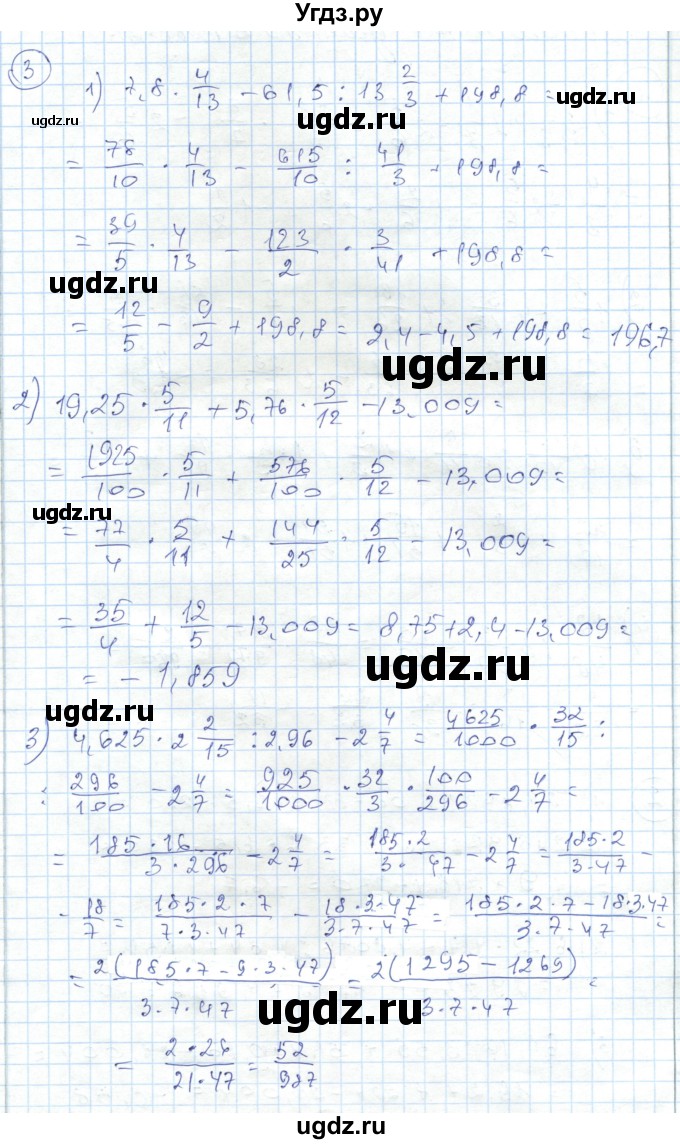 Угдз.ру
3
1) 7,8 · 4/13 - 61,5 : 13 2/3 + 198,8 =
ugdz.ru
ugdz.ru
ugdz.ru
= 78/10 · 4/13 - 615/10 : 41/3 + 198,8 =
= 39/5 · 4/13 - 123/2 · 3/41 + 198,8 =
ugdz.ru
ugdz.ru
= 12/5 - 9/2 + 198,8 = 2,4 - 4,5 + 198,8 = 196,7
ugdz.ru
2) 19,25 · 5/11 + 5,76 · 5/12 - 13,009 =
= 1925/100 · 5/11 + 576/100 · 5/12 - 13,009 =
ugdz.ru
ugdz.ru
= 77/4 · 5/11 + 144/25 · 5/12 - 13,009 =
= 35/4 + 12/5 - 13,009 = 8,75 + 2,4 - 13,009 =
ugdz.ru
ugdz.ru
= - 1,859
3) 4,625 · 2 2/15 : 2,96 - 2 4/7 = 4625/1000 · 32/15 :
: 296/100 - 2 4/7 = 925/1000 · 32/3 · 100/296 - 2 4/7 =
ugdz.ru
= 185·16/3·296 - 2 4/7 = 185·2/3·47 - 2 4/7 = 185·2/3·47 -
ugdz.ru
- 18/7 = 185·2·7/7·3·47 - 18·3·47/3·7·47 = 185·2·7-18·3·47/3·7·47 =
ugdz.ru
= 2(185·7-9·3·47)/3·7·47 = 2(1295-1269)/3·7·47 =
ugdz.ru
= 2·26/21·47 = 52/987
ugdz.ru
ugdz.ru